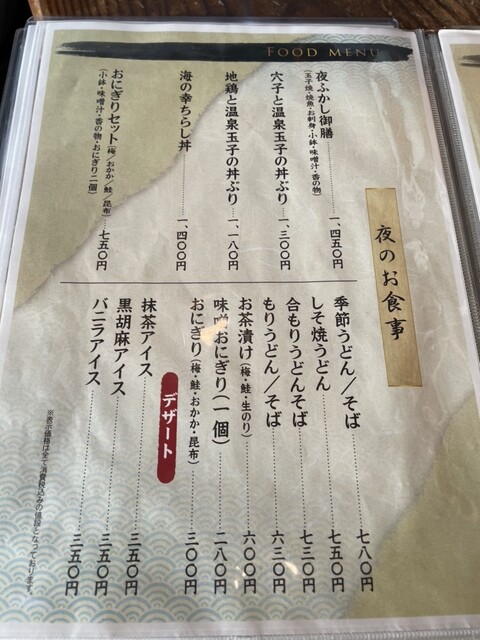 FOOD MENU
夜のお食事
夜ふかし御膳
(玉子焼・焼魚・お刺身・小鉢・味噌汁・香の物)
一、四五〇円
穴子と温泉玉子の丼ぶり……一、三〇〇円
地鶏と温泉玉子の丼ぶり……一、一八〇円
海の幸ちらし丼……一、四〇〇円
おにぎりセット(梅/おかか/鮭/昆布)
(小鉢・味噌汁・香の物・おにぎり二個)
七五〇円
季節うどん/そば……七八〇円
しそ焼うどん……七五〇円
合もりうどんそば……七三〇円
もりうどん/そば……六三〇円
お茶漬け(梅・鮭・生のり)……六〇〇円
味噌おにぎり(一個)……二八〇円
おにぎり(梅・鮭・おかか・昆布)……三〇〇円
デザート
抹茶アイス……三五〇円
黒胡麻アイス……三五〇円
バニラアイス……三五〇円
※表示価格は全て消費税込みの値段となっております。